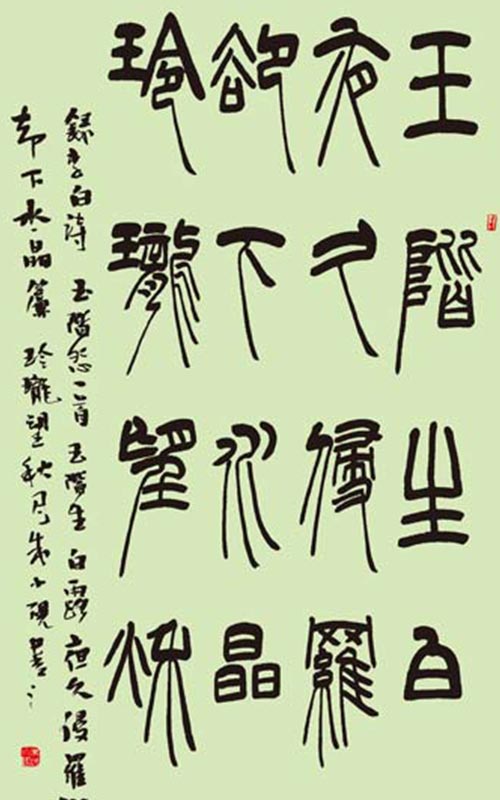 玉階生白
夜久侵羅
卻下水晶
玲瓏望秋
錄李白詩 玉階怨一首 玉階生白露夜久侵羅
却下水晶簾 玲瓏望秋月 小硯書